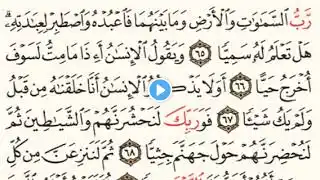 رَّبُّ السَّمَٰوَٰتِ وَالْأَرْضِ وَمَا بَيْنَهُمَا فَاعْبُدْهُ وَاصْطَبِرْ لِعِبَٰدَتِهِۦ ۚ
هَلْ تَعْلَمُ لَهُۥ سَمِيًّا ٦٥ وَيَقُولُ الْإِنسَٰنُ أَءِذَا مَا مِتُّ لَسَوْفَ
أُخْرَجُ حَيًّا ٦٦ أَوَلَا الْإِنسَٰنُ أَنَّا خَلَقْنَٰهُ مِن قَبْلُ
وَلَمْ يَكُ شَيْـًٔا ٦٧ فَوَرَبِّكَ لَنَحْشُرَنَّهُمْ وَالشَّيَٰطِينَ ثُمَّ
لَنُحْضِرَنَّهُمْ حَوْلَ جَهَنَّمَ جِثِيًّا ٦٨ ثُمَّ لَنَنزِعَنَّ مِن كُلِّ